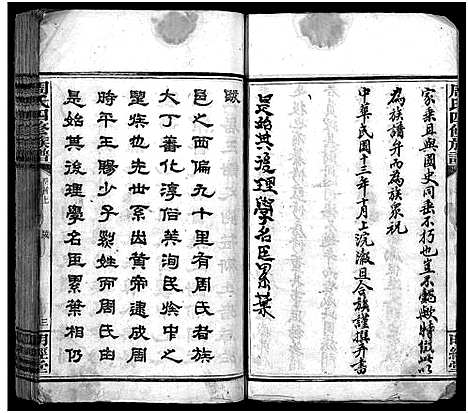 周氏四修族譜
家乘且與國史同垂不朽也豈不懿歟特假此以
為族譜弁而為族衆祝
中華民國十三年十月上浣瀫旦合族謹撰弁書
是始其後理學名臣累葉
跋
邑之西偏九十里有周氏者族
大丁蕃化淳俗美洵民族中之
望族也先世系出黃帝逮成周
時平王賜少子烈姓而周氏由
是始其後理學名臣累葉相仍
周氏四修族譜
跋
三
明經堂